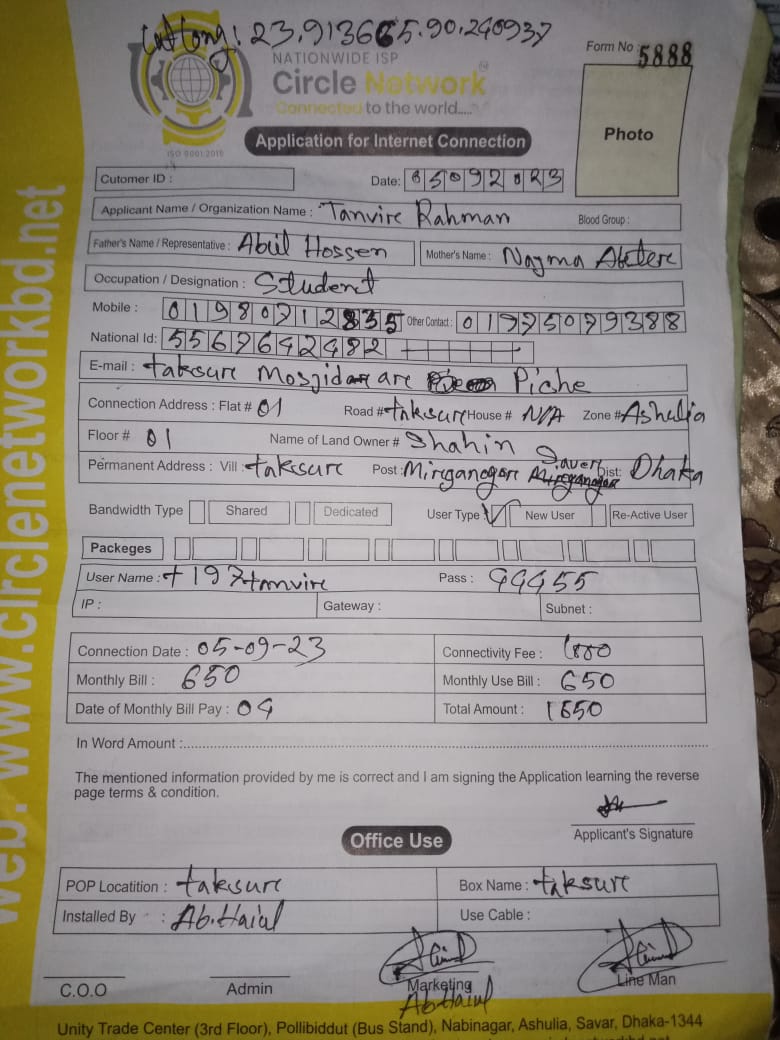 Lat Long: 23.913665.90.240937
NATIONWIDE ISP
Circle Network
Connected to the world.....
ISO 9001:2015
Form No 5888
Photo
Application for Internet Connection
Cutomer ID :
Date: 05092023
Applicant Name / Organization Name : Tanvire Rahman Blood Group :
Father's Name / Representative : Abul Hossen Mother's Name : Nazma Aktere
Occupation / Designation : Student
Mobile : 01980712835 Other Contact : 01975079388
National Id: 5567642482
E-mail : taksure Mosjidar are Piche
Connection Address : Flat # 01 Road # taksure House # N/A Zone # Ashulia
Floor # 01 Name of Land Owner # Shahin
Permanent Address : Vill : takssure Post : Mirganogor Savert Dist: Dhaka
Bandwidth Type Shared Dedicated User Type New User Re-Active User
Packeges
User Name : t197tanvire Pass : 99955
IP : Gateway : Subnet :
Connection Date : 05-09-23 Connectivity Fee : 1000
Monthly Bill : 650 Monthly Use Bill : 650
Date of Monthly Bill Pay : 09 Total Amount : 1650
In Word Amount :
The mentioned information provided by me is correct and I am signing the Application learning the reverse
page terms & condition.
Applicant's Signature
Office Use
POP Locatition : taksure Box Name : taksure
Installed By : Ab.Haial Use Cable :
C.O.O Admin Marketing Line Man
Ab.Haiul
Unity Trade Center (3rd Floor), Pollibiddut (Bus Stand), Nabinagar, Ashulia, Savar, Dhaka-1344
web: www.circlenetworkbd.net